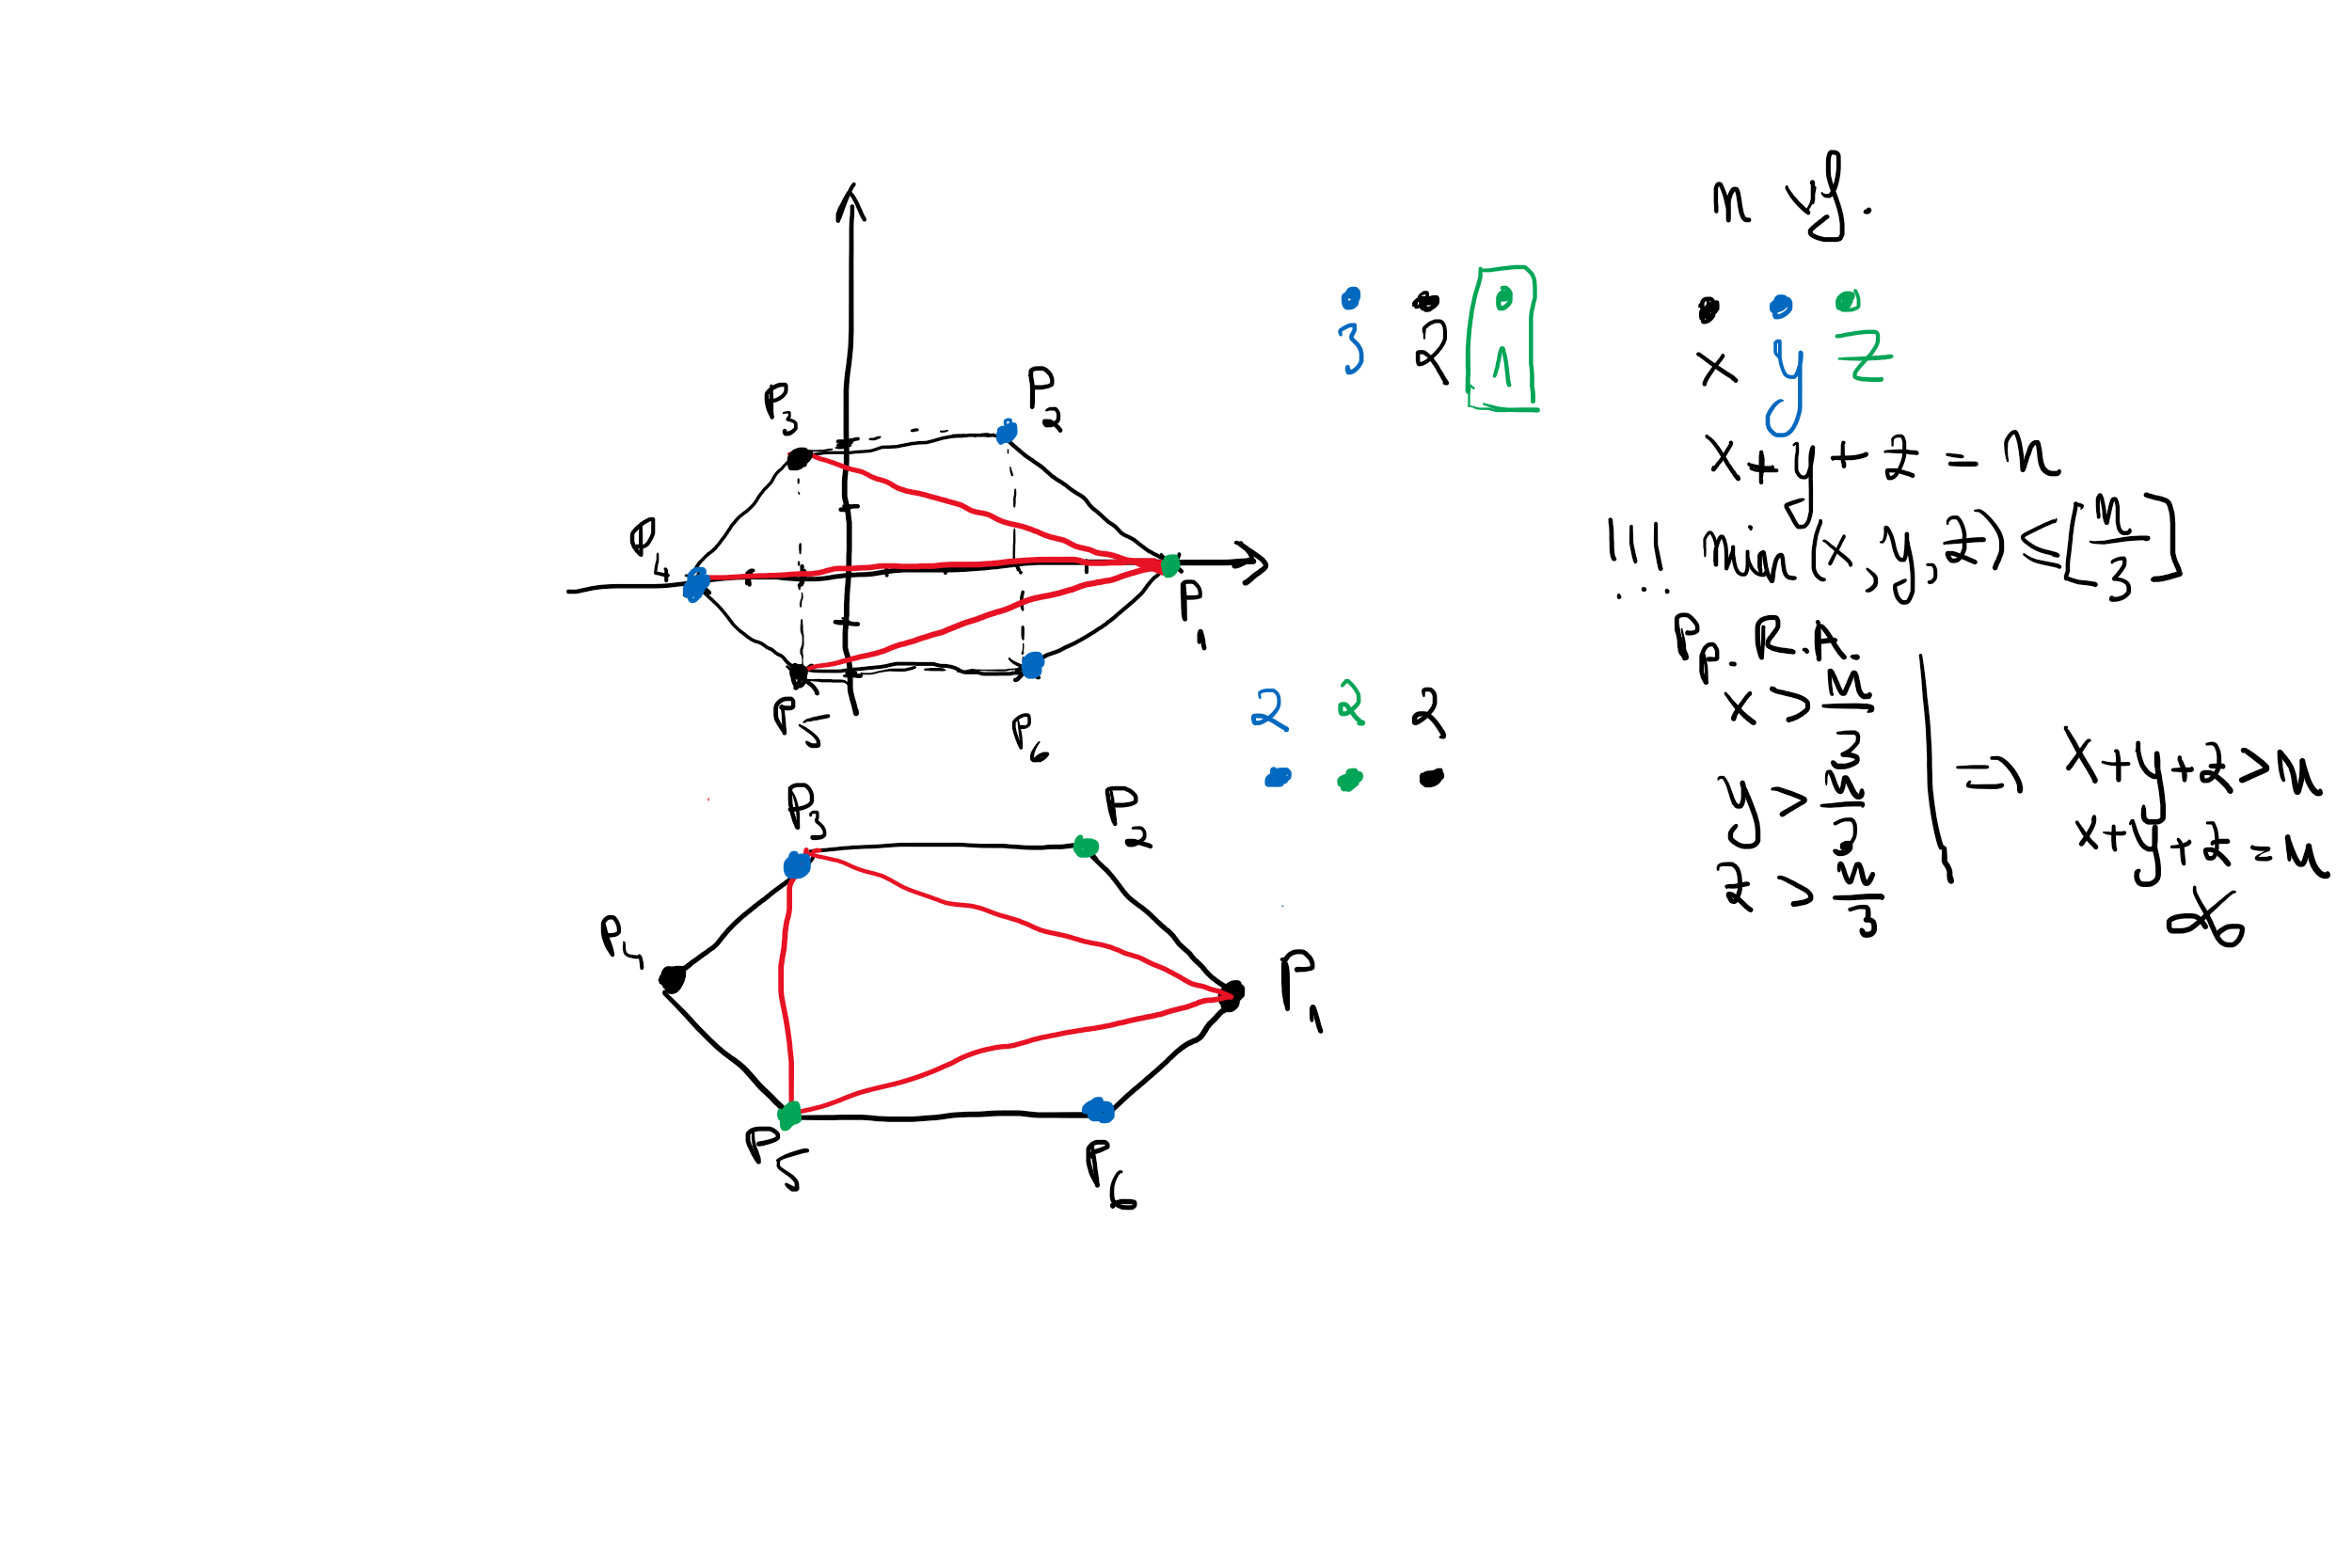 P3
P2
P4
P1
P5
P6
3 2 1
2 2 2
P3
P2
P4
P1
P5
P6
n
x y z
x+y+z=n
!!! min(x,y,z) ≤ [n/3]
x > n/3
y > n/3
z > n/3
=> x+y+z>n
x+y+z=n